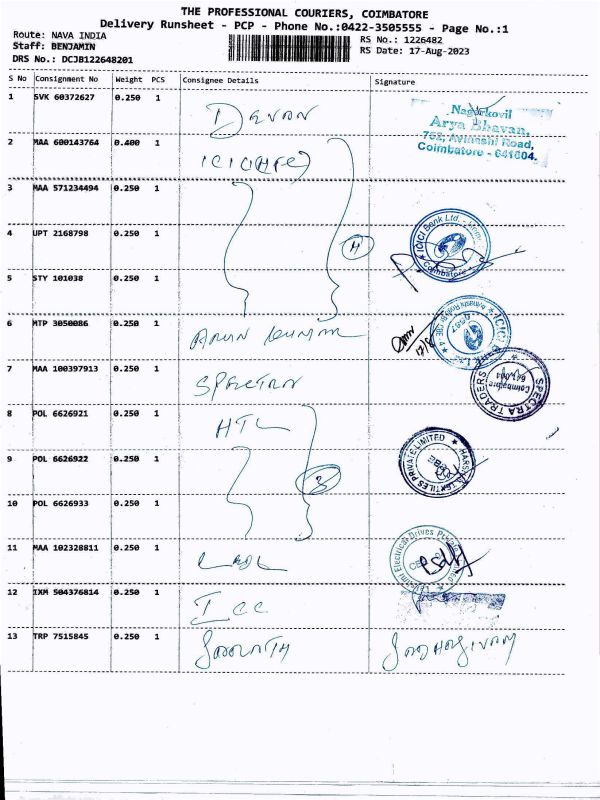 THE PROFESSIONAL COURIERS, COIMBATORE
Delivery Runsheet - PCP - Phone No.:0422-3505555 - Page No.:1
Route: NAVA INDIA
RS No.: 1226482
Staff: BENJAMIN
RS Date: 17-Aug-2023
DRS No.: DCJB122648201
S No Consignment No Weight PCS Consignee Details Signature
1 SVK 60372627 0.250 1 DEVAN
Nagerkovil
Arya Bhavan,
752, Avinashi Road,
Coimbatore - 641004.
2 MAA 600143764 0.400 1
3 MAA 571234494 0.250 1
4 UPT 2168798 0.250 1 4
ICICI Bank Ltd.
Coimbatore
5 STY 101038 0.250 1
6 MTP 3050086 0.250 1 ARUN KUMAR
7 MAA 100397913 0.250 1 SPECTRA
SPECTRA TRADERS
Coimbatore
8 POL 6626921 0.250 1 HTL
9 POL 6626922 0.250 1 3
TEXTILES PRIVATE LIMITED
10 POL 6626933 0.250 1
11 MAA 102328811 0.250 1
Electrical Drives Private
12 IXM 504376814 0.250 1 ICC
13 TRP 7515845 0.250 1